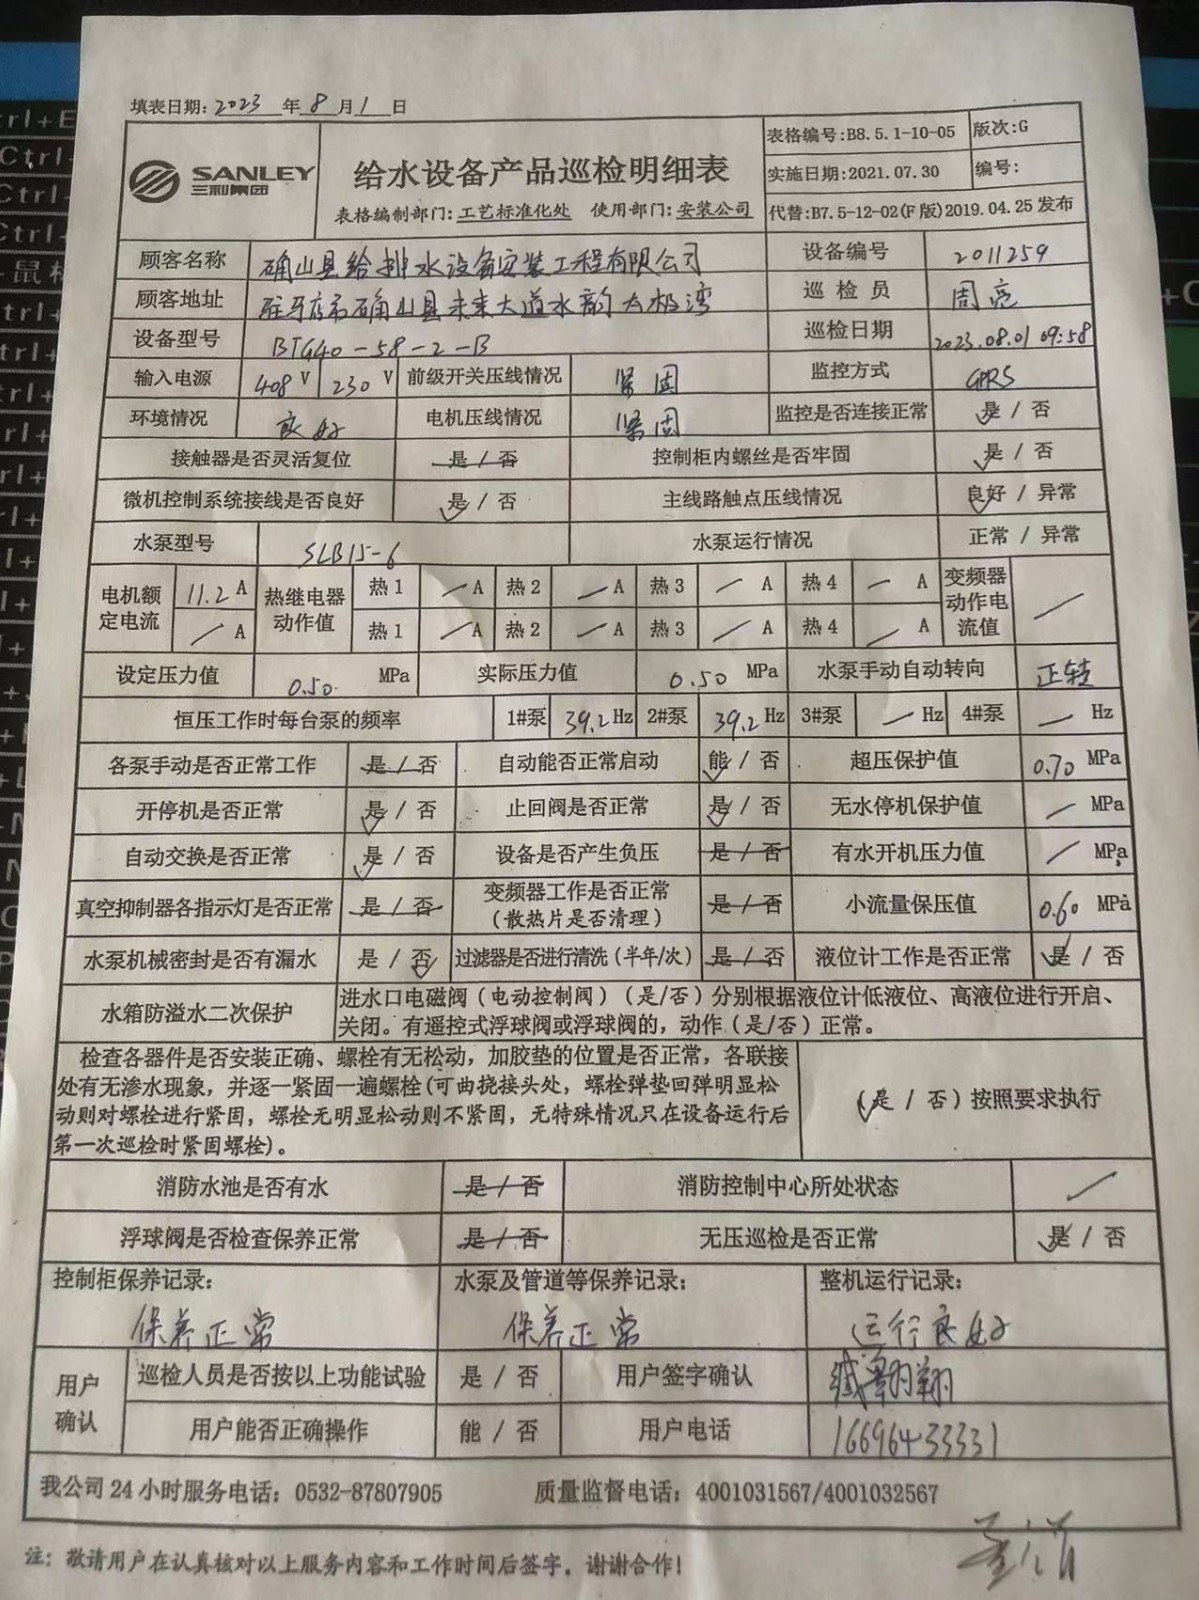 填表日期:2023 年 8 月 1 日
SANLEY
三利集团
给水设备产品巡检明细表
表格编制部门:工艺标准化处 使用部门:安装公司
表格编号:B8.5.1-10-05 版次:G
实施日期:2021.07.30 编号:
代替:B7.5-12-02(F版)2019.04.25发布
顾客名称 确山县给排水设备安装工程有限公司 设备编号 2011259
顾客地址 驻马店市确山县未来大道水韵太极湾 巡检员 周亮
设备型号 BTG40-58-2-B 巡检日期 2023.08.01 09:58
输入电源 408 V 230 V 前级开关压线情况 紧固 监控方式 GPRS
环境情况 良好 电机压线情况 紧固 监控是否连接正常 是 / 否
接触器是否灵活复位 是 / 否 控制柜内螺丝是否牢固 是 / 否
微机控制系统接线是否良好 是 / 否 主线路触点压线情况 良好 / 异常
水泵型号 SLB15-6 水泵运行情况 正常 / 异常
电机额定电流 11.2 A 热继电器动作值 热1 — A 热2 — A 热3 — A 热4 — A 变频器动作电流值 —
— A 热1 — A 热2 — A 热3 — A 热4 — A
设定压力值 0.50 MPa 实际压力值 0.50 MPa 水泵手动自动转向 正转
恒压工作时每台泵的频率 1#泵 39.2 Hz 2#泵 39.2 Hz 3#泵 — Hz 4#泵 — Hz
各泵手动是否正常工作 是 / 否 自动能否正常启动 能 / 否 超压保护值 0.70 MPa
开停机是否正常 是 / 否 止回阀是否正常 是 / 否 无水停机保护值 — MPa
自动交换是否正常 是 / 否 设备是否产生负压 是 / 否 有水开机压力值 — MPa
真空抑制器各指示灯是否正常 是 / 否 变频器工作是否正常(散热片是否清理) 是 / 否 小流量保压值 0.60 MPa
水泵机械密封是否有漏水 是 / 否 过滤器是否进行清洗(半年/次) 是 / 否 液位计工作是否正常 是 / 否
水箱防溢水二次保护 进水口电磁阀(电动控制阀)(是/否)分别根据液位计低液位、高液位进行开启、
关闭。有遥控式浮球阀或浮球阀的,动作(是/否)正常。
检查各器件是否安装正确、螺栓有无松动,加胶垫的位置是否正常,各联接
处有无渗水现象,并逐一紧固一遍螺栓(可曲挠接头处,螺栓弹垫回弹明显松
动则对螺栓进行紧固,螺栓无明显松动则不紧固,无特殊情况只在设备运行后
第一次巡检时紧固螺栓)。
(是 / 否)按照要求执行
消防水池是否有水 是 / 否 消防控制中心所处状态 —
浮球阀是否检查保养正常 是 / 否 无压巡检是否正常 是 / 否
控制柜保养记录: 水泵及管道等保养记录: 整机运行记录:
保养正常 保养正常 运行良好
用户确认 巡检人员是否按以上功能试验 是 / 否 用户签字确认 臧翱翔
用户能否正确操作 能 / 否 用户电话 16696433331
我公司24小时服务电话:0532-87807905 质量监督电话:4001031567/4001032567
注:敬请用户在认真核对以上服务内容和工作时间后签字。谢谢合作!